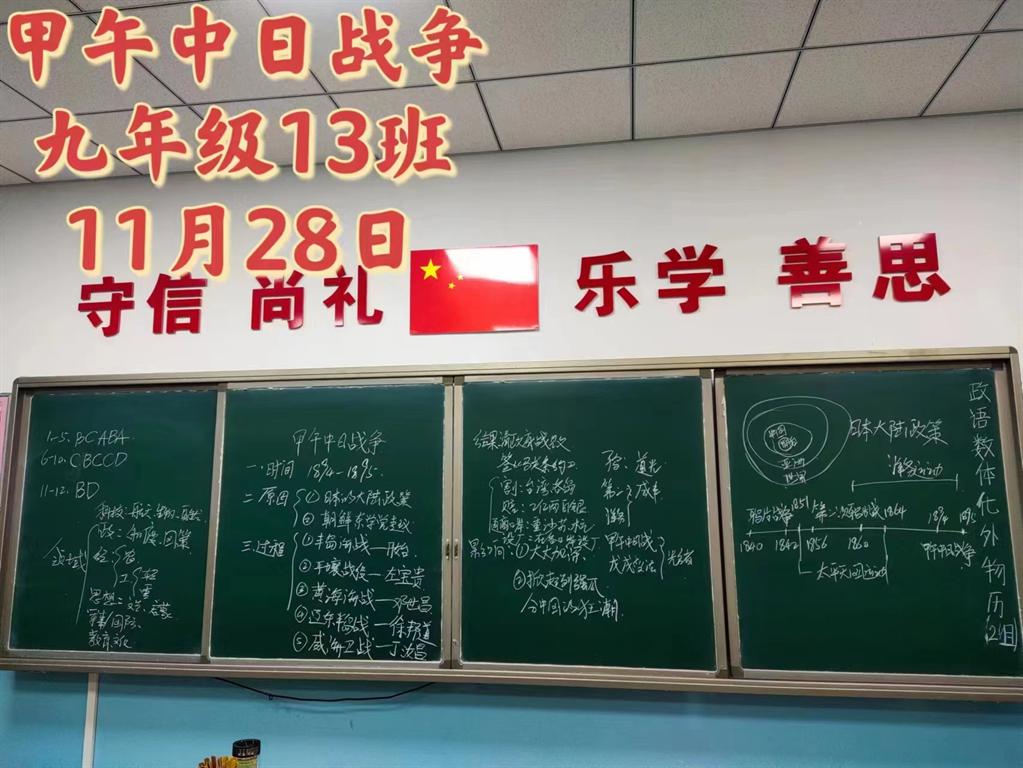 甲午中日战争
九年级13班
11月28日
守信 尚礼 乐学 善思
1-5. BCABA
6-10. CBCCD
11-12. BD
政：制度、国策
思想：
军事/国际
教育文化
甲午中日战争
一.时间 1894-1895
二.原因 ①日本的大陆政策
②朝鲜东学党起义
三.过程 ①丰岛海战
②平壤战役—左宝贵
③黄海海战—邓世昌
④辽东半岛战—徐邦道
⑤威海卫战—丁汝昌
结果：清政府战败
割：台湾
赔：2亿两白银
①大大加深
甲午中日战
戊戌变法
②掀起列强瓜
分中国的狂潮
日本大陆政策
洋务运动
1851
第二次鸦片战
1864
1894
1895
1840
1842
1856
1860
甲午中日战争
太平天国运动
政语数体化外物历
2组